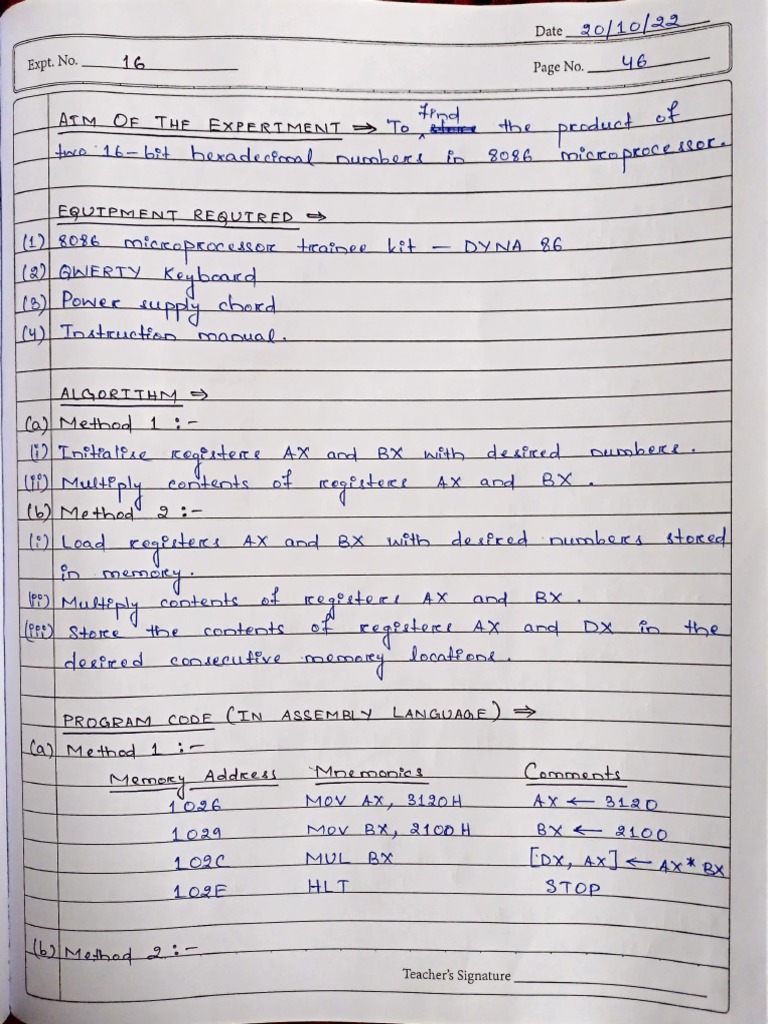 Date 20/10/22
Expt. No. 16
Page No. 46
AIM OF THE EXPERIMENT ⇒ To find the product of
two 16-bit hexadecimal numbers in 8086 microprocessor.
EQUIPMENT REQUIRED ⇒
(1) 8086 microprocessor trainee kit — DYNA 86
(2) QWERTY Keyboard
(3) Power supply chord
(4) Instruction manual.
ALGORITHM ⇒
(a) Method 1 :-
(i) Initialise registers AX and BX with desired numbers.
(ii) Multiply contents of registers AX and BX.
(b) Method 2 :-
(i) Load registers AX and BX with desired numbers stored
in memory.
(ii) Multiply contents of registers AX and BX.
(iii) Store the contents of registers AX and DX in the
desired consecutive memory locations.
PROGRAM CODE (IN ASSEMBLY LANGUAGE) ⇒
(a) Method 1 :-
Memory Address Mnemonics Comments
1026 MOV AX, 3120H AX ← 3120
1029 MOV BX, 2100H BX ← 2100
102C MUL BX [DX, AX] ← AX * BX
102E HLT STOP
(b) Method 2 :-
Teacher's Signature